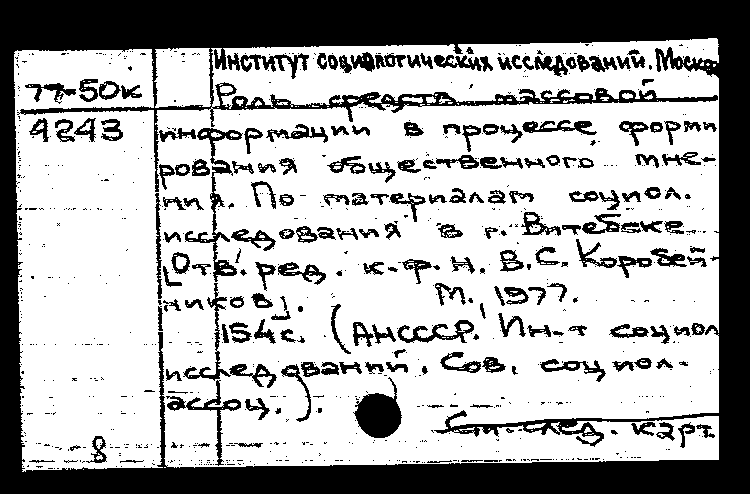 Институт социологических исследований. Москва
77-50к
Роль средств массовой
4243
информации в процессе форми
рования общественного мне-
ния. По материалам социол.
исследования в г. Витебске
[Отв. ред. к.ф.н. В.С. Коробей-
ников]. М., 1977.
154с. (АНСССР. Ин-т социол
исследований. Сов. социол.
ассоц.).
См. след. карт.
8